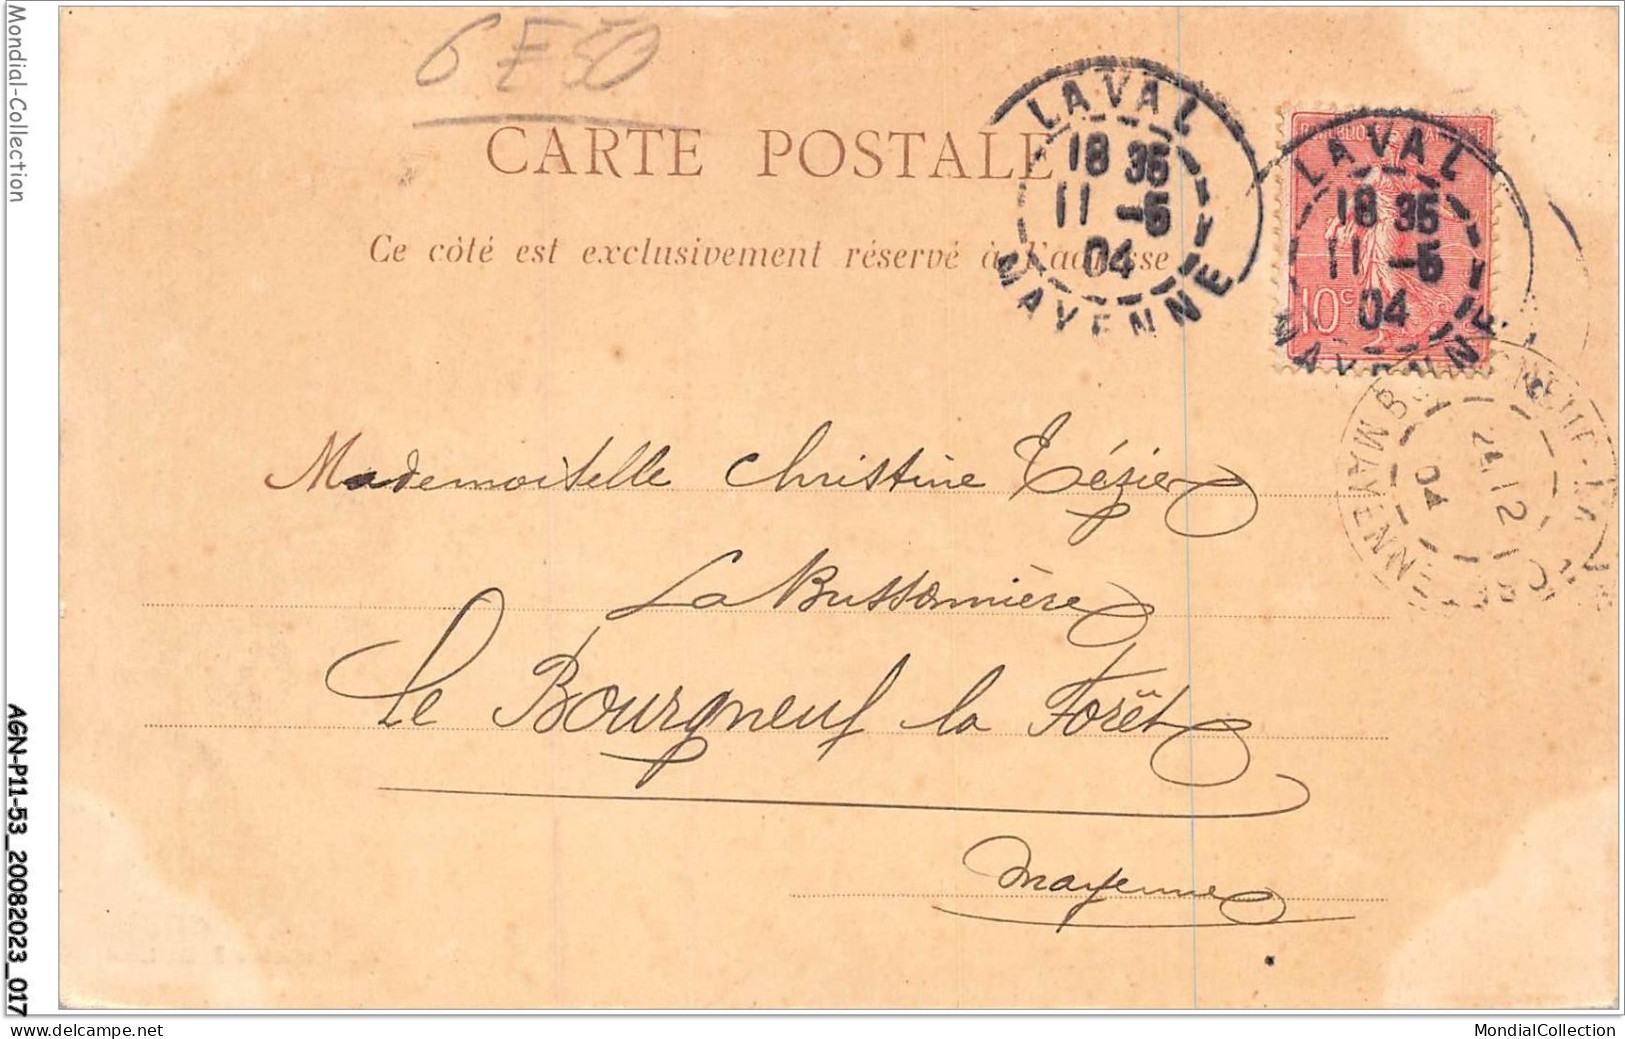 Mondial-Collection
6 E50
CARTE POSTALE
Ce côté est exclusivement réservé à l'adresse
LAVAL
18 35
11 -5
04
MAYENNE
LAVAL
18 35
11 -5
04
MAYENNE
10c
MAYENNE
12
04
Mademoiselle Christine Tézier
La Bussonnière
Le Bourgneuf la Forêt
Mayenne
AGN-P11-53_20082023_017
delcampe.net
MondialCollection